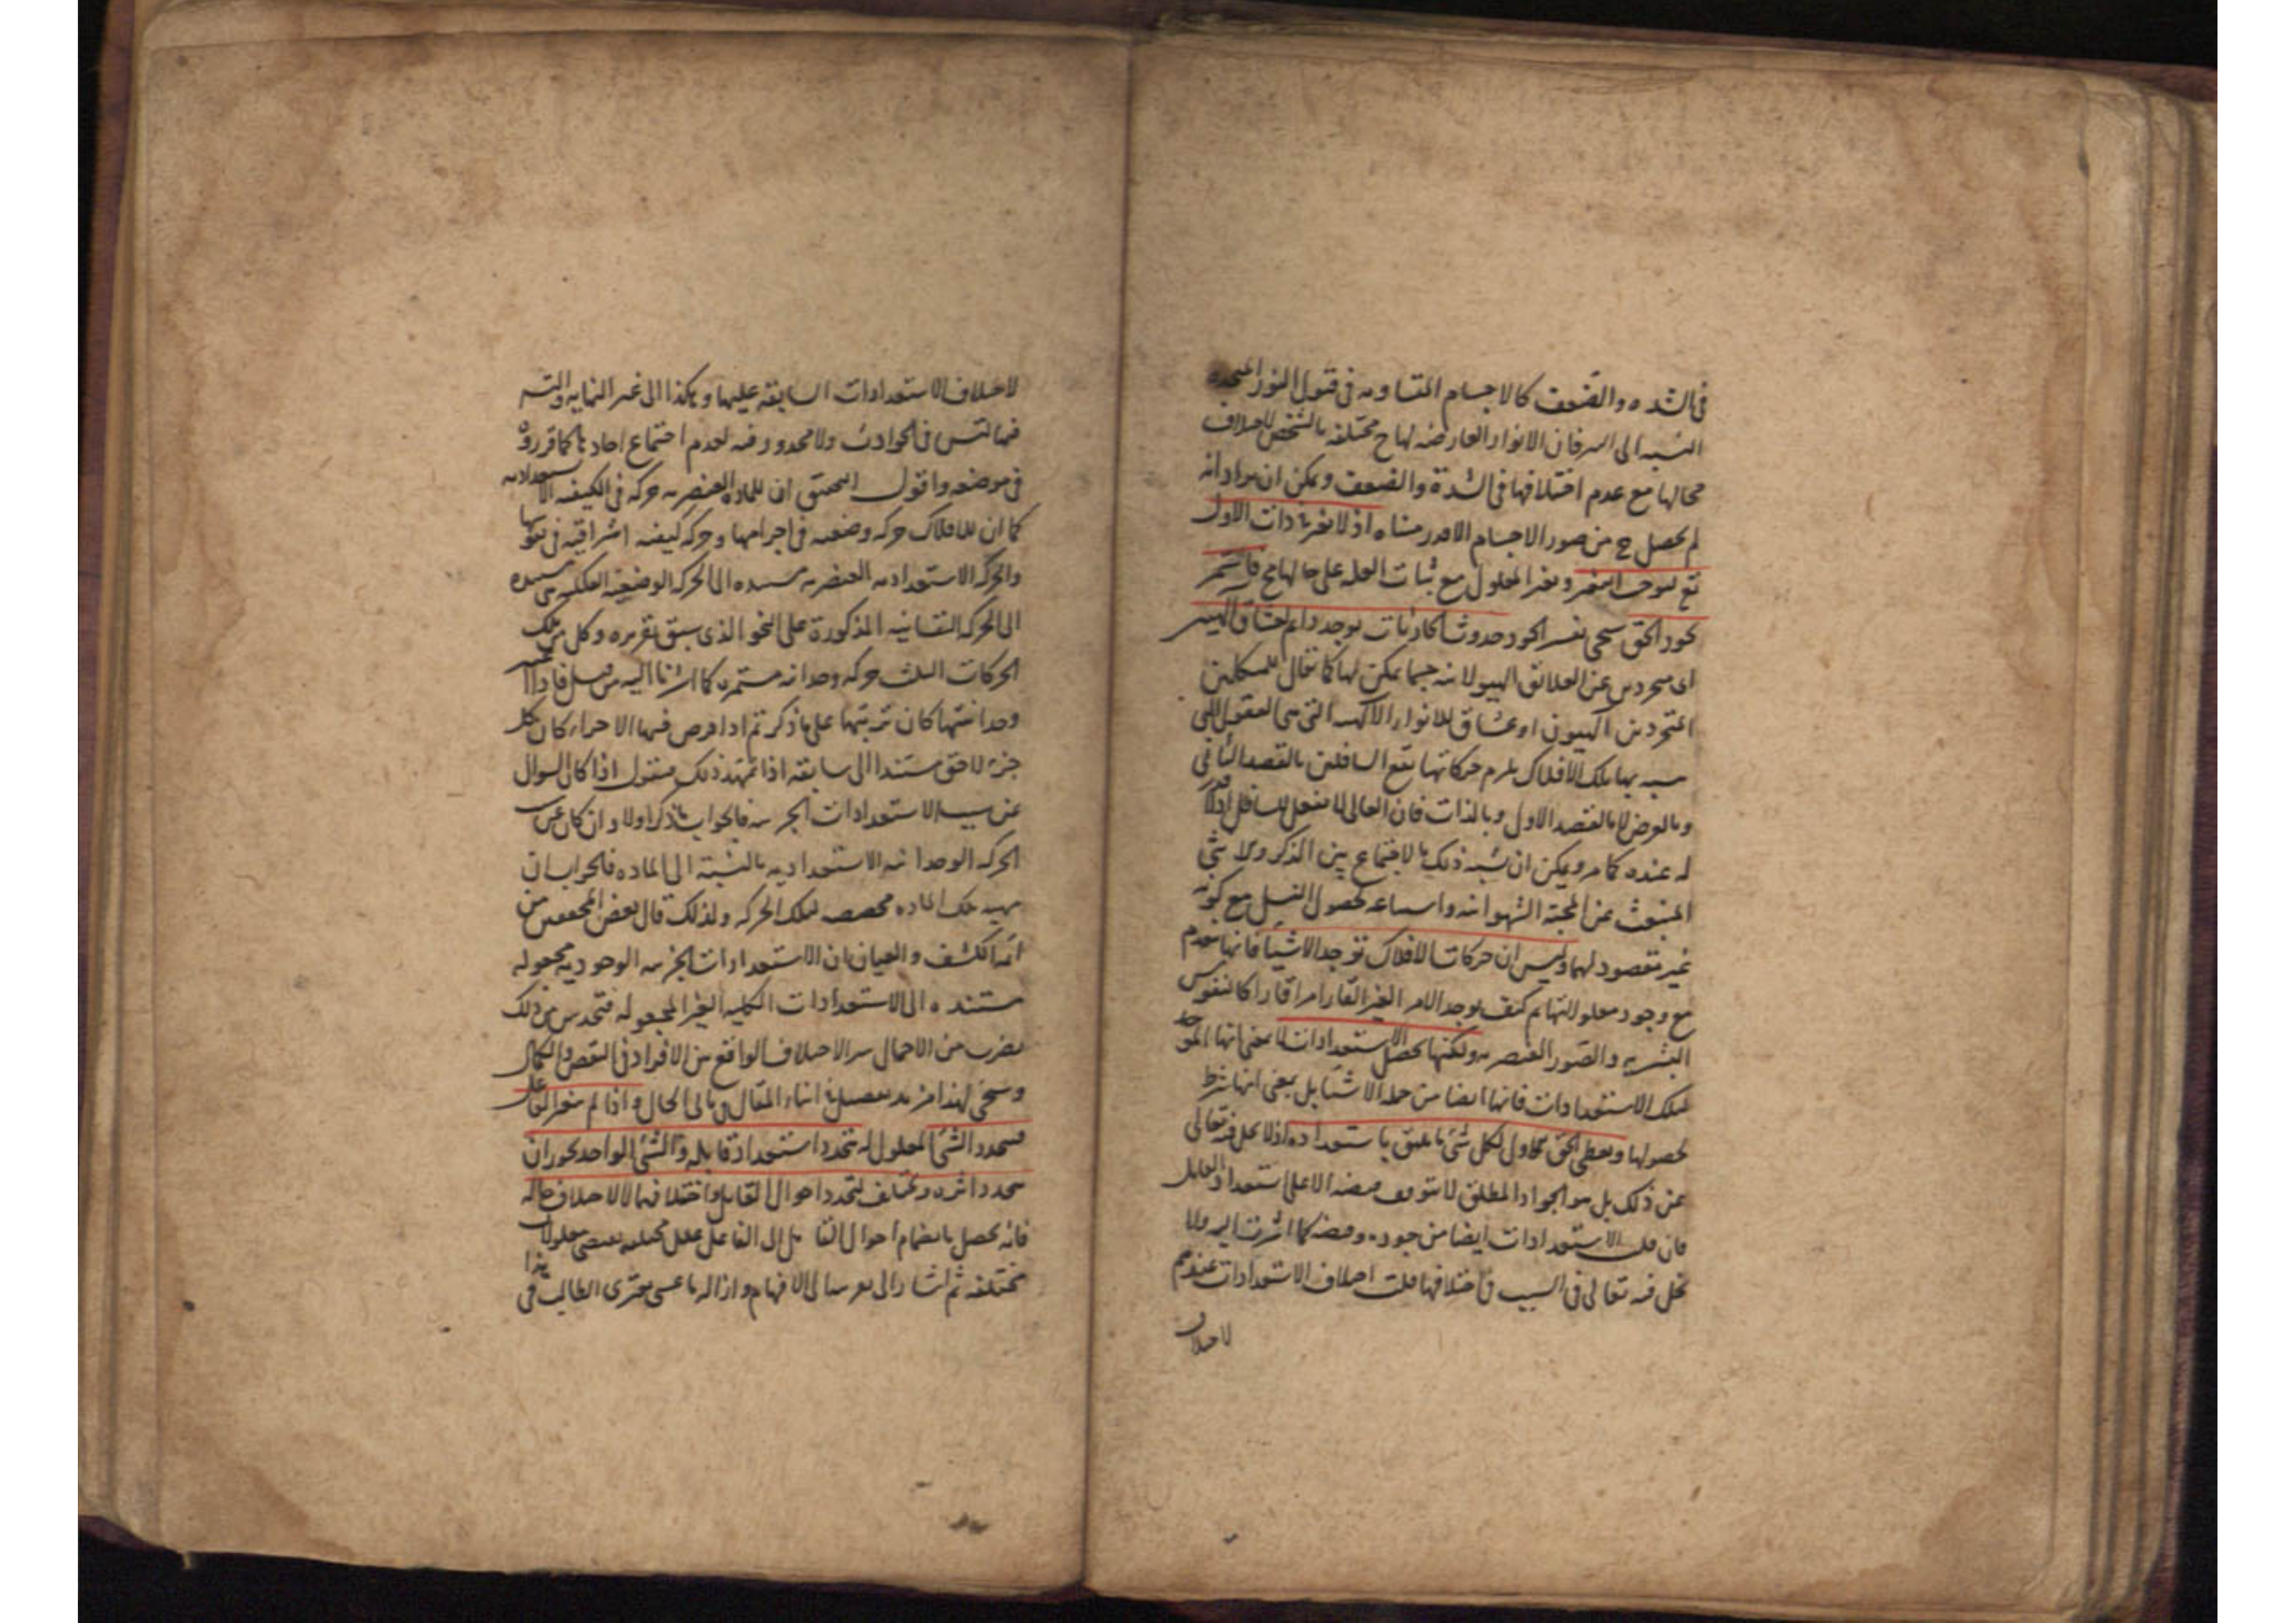 في الشده والضعف كالاجسام المتساويه في قبول النور المتحده
النسبه الى النير فان الانوار العارضه لها ح مختلفه بالشخص لاختلاف
محالها مع عدم اختلافها في الشدة والضعف ويمكن ان يراد انه
لم يحصل ح من صور الاجسام الا قدر متناه اذ لا تغير في ذات الاول
تع ليوجب التغير وتغير المعلول مع ثبات العله على حالها مح فاستمر
جود الحق سحى نفس الجود حدوثا كاذبات توجد دايم لعشاق الهيين
اى متجردين عن العلائق الهيولانيه حيثما يمكن لها كما يقال للسالكين
المتجردين الهيون او عشاق للانوار الالهيه التي هي العقول التي
بها تلك الافلاك يلزم حركاتها نفع السافلين بالقصد الثاني
وبالعرض لا بالقصد الاول وبالذات فان العالى لا يفعل للسافل اذ لا قدر
له عنده كما مر ويمكن ان يشبه ذلك بالاجتماع بين الذكر والانثى
المنبعث عن المحبة الشهوانيه واستتباعه لحصول النسل مع كونه
غير مقصود لهما وليس ان حركات الافلاك توجد الاشياء فانها تنعدم
مع وجود معلولاتها ثم كيف يوجد الامر الغير القار امرا قارا كالنفوس
البشريه والصور العنصريه ولكنها تحصل الاستعدادات لا بمعنى انها الموجد
لتلك الاستعدادات فانها ايضا من جمله الاشياء بل بمعنى انها شرط
لحصولها ويعطى الحق الاول لكل شئ ما يليق باستعداده اذ لا بخل فيه تعالى
عن ذلك بل هو الجواد المطلق لا يتوقف فيضه الا على استعداد القابل
فان قلت الاستعدادات ايضا من جوده وفيضه كما اشرت اليه ولا
بخل فيه تعالى فما السبب في اختلافها قلت اختلاف الاستعدادات عندهم
لاختلاف
لاختلاف الاستعدادات السابقه عليها وهكذا الى غير النهايه والتسلسل
فيما التس في الحوادث ولا محذور فيه لعدم اجتماع احادها كما قرروه
في موضعه واقول التحقيق ان للماده العنصريه حركه في الكيفيه الاستعداديه
كما ان للافلاك حركه وضعيه في اجرامها وحركه كيفيه اشراقيه في نفوسها
والحركه الاستعداديه العنصريه مستنده الى الحركه الوضعيه الفلكيه وهى مستنده
الى الحركه النفسانيه المذكورة على النحو الذى سبق تقريره وكل من تلك
الحركات الثلث حركه وحدانيه مستمره كما اشرنا اليه من قبل فاذا اعتبر
وحدانيتها كان ترتبها على ما ذكر ثم اذا فرض فيها الاجزاء كان كل
جزء لاحق مستندا الى سابقه اذا تمهد ذلك فنقول اذا كان السوال
عن سبب الاستعدادات الجزئيه فالجواب ما ذكر اولا وان كان عن سبب
الحركه الوحدانيه الاستعداديه بالنسبة الى الماده فالجواب ان
مهيه تلك الماده مخصصه لتلك الحركه ولذلك قال بعض المحققين من
ائمة الكشف والعيان بان الاستعدادات الجزئيه الوجوديه مجعوله
مستنده الى الاستعدادات الكليه الغير المجعوله فتحدس من ذلك
بضرب من الاجمال سر الاختلاف الواقع بين الافراد في النقص والكمال
وسيجئ لهذا مزيد تفصيل في اثناء المقال في تالى الحال واذا لم يتغير الفاعل
فتجدد الشئ المعلول له تجدد استعداد قابله والشئ الواحد يجوز ان
يتجدد اثره ويختلف لتجدد احوال القابل واختلافها لا لاختلاف حاله
فانه يحصل بانضمام احوال القابل الى الفاعل علل مختلفه تقتضى معلولات
مختلفه ثم اشار الى تقريبه الى الافهام وازاله ما عسى يعترى الطالب في
هذا